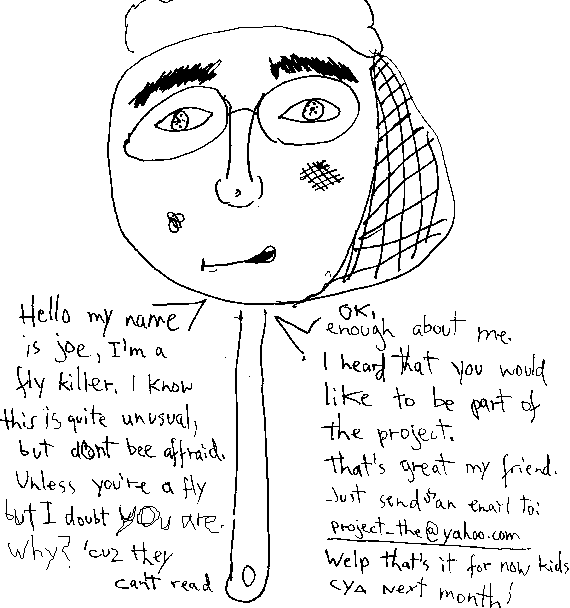 Hello my name
is joe, I'm a
fly killer. I know
this is quite unusual,
but dont bee affraid.
Unless you're a fly
but I doubt you are.
why? 'cuz they
cant read
OK,
enough about me.
I heard that you would
like to be part of
the project.
that's great my friend.
Just send us an email to:
project_the@yahoo.com
Welp that's it for now kids
cya next month!